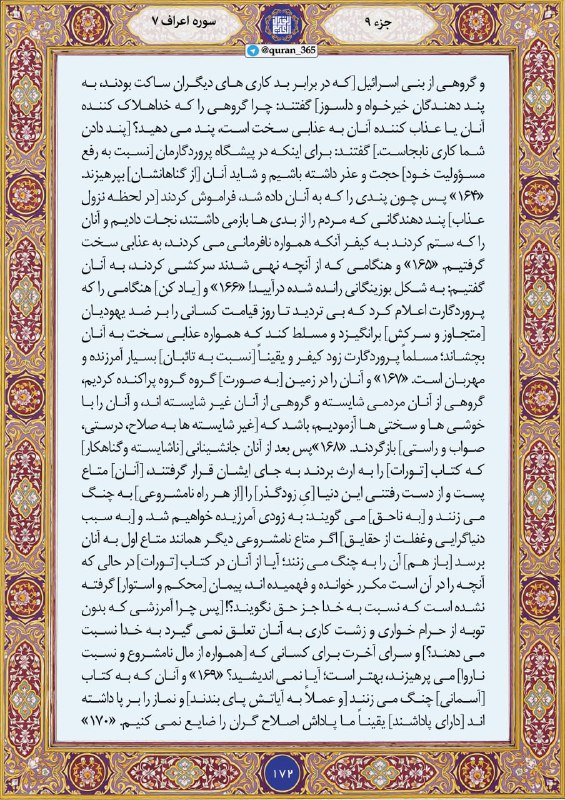 جزء ۹
سوره اعراف ۷
@quran_365
و گروهی از بنی اسرائیل [که در برابر بد کاری های دیگران ساکت بودند، به
پند دهندگان خیرخواه و دلسوز] گفتند: چرا گروهی را که خدا هلاک کننده
آنان یا عذاب کننده آنان به عذابی سخت است، پند می دهید؟ [پند دادن
شما کاری نابجاست.] گفتند: برای اینکه در پیشگاه پروردگارمان [نسبت به رفع
مسؤولیت خود] حجت و عذر داشته باشیم و شاید آنان [از گناهانشان] بپرهیزند.
«۱۶۴» پس چون پندی را که به آنان داده شد، فراموش کردند [در لحظه نزول
عذاب] پند دهندگانی که مردم را از بدی ها بازمی داشتند، نجات دادیم و آنان
را که ستم کردند به کیفر آنکه همواره نافرمانی می کردند، به عذابی سخت
گرفتیم. «۱۶۵» و هنگامی که از آنچه نهی شدند سرکشی کردند، به آنان
گفتیم: به شکل بوزینگانی رانده شده درآیید! «۱۶۶» و [یاد کن] هنگامی را که
پروردگارت اعلام کرد که بی تردید تا روز قیامت کسانی را بر ضد یهودیان
[متجاوز و سرکش] برانگیزد و مسلط کند که همواره عذابی سخت به آنان
بچشاند؛ مسلماً پروردگارت زود کیفر و یقیناً [نسبت به تائبان] بسیار آمرزنده و
مهربان است. «۱۶۷» و آنان را در زمین [به صورت] گروه گروه پراکنده کردیم،
گروهی از آنان مردمی شایسته و گروهی از آنان غیر شایسته اند، و آنان را با
خوشی ها و سختی ها آزمودیم، باشد که [غیر شایسته ها به صلاح، درستی،
صواب و راستی] بازگردند. «۱۶۸»پس بعد از آنان جانشینانی [ناشایسته و گناهکار]
که کتاب [تورات] را به ارث بردند به جای ایشان قرار گرفتند، [آنان] متاع
پست و از دست رفتنی این دنیا [یِ زودگذر] را [از هر راه نامشروعی] به چنگ
می زنند و [به ناحق] می گویند: به زودی آمرزیده خواهیم شد. و [به سبب
دنیاگرایی و غفلت از حقایق] اگر متاع نامشروعی دیگر همانند متاع اول به آنان
برسد [باز هم] آن را به چنگ می زنند؛ آیا از آنان در کتاب [تورات] در حالی که
آنچه را در آن است مکرر خوانده و فهمیده اند، پیمان [محکم و استوار] گرفته
نشده است که نسبت به خدا جز حق نگویند؟! [پس چرا آمرزشی که بدون
توبه از حرام خواری و زشت کاری به آنان تعلق نمی گیرد به خدا نسبت
می دهند؟] و سرای آخرت برای کسانی که [همواره از مال نامشروع و نسبت
ناروا] می پرهیزند، بهتر است؛ آیا نمی اندیشید؟ «۱۶۹» و آنان که به کتاب
[آسمانی] چنگ می زنند [و عملاً به آیاتش پای بندند] و نماز را بر پا داشته
اند [دارای پاداشند] یقیناً ما پاداش اصلاح گران را ضایع نمی کنیم. «۱۷۰»
۱۷۲